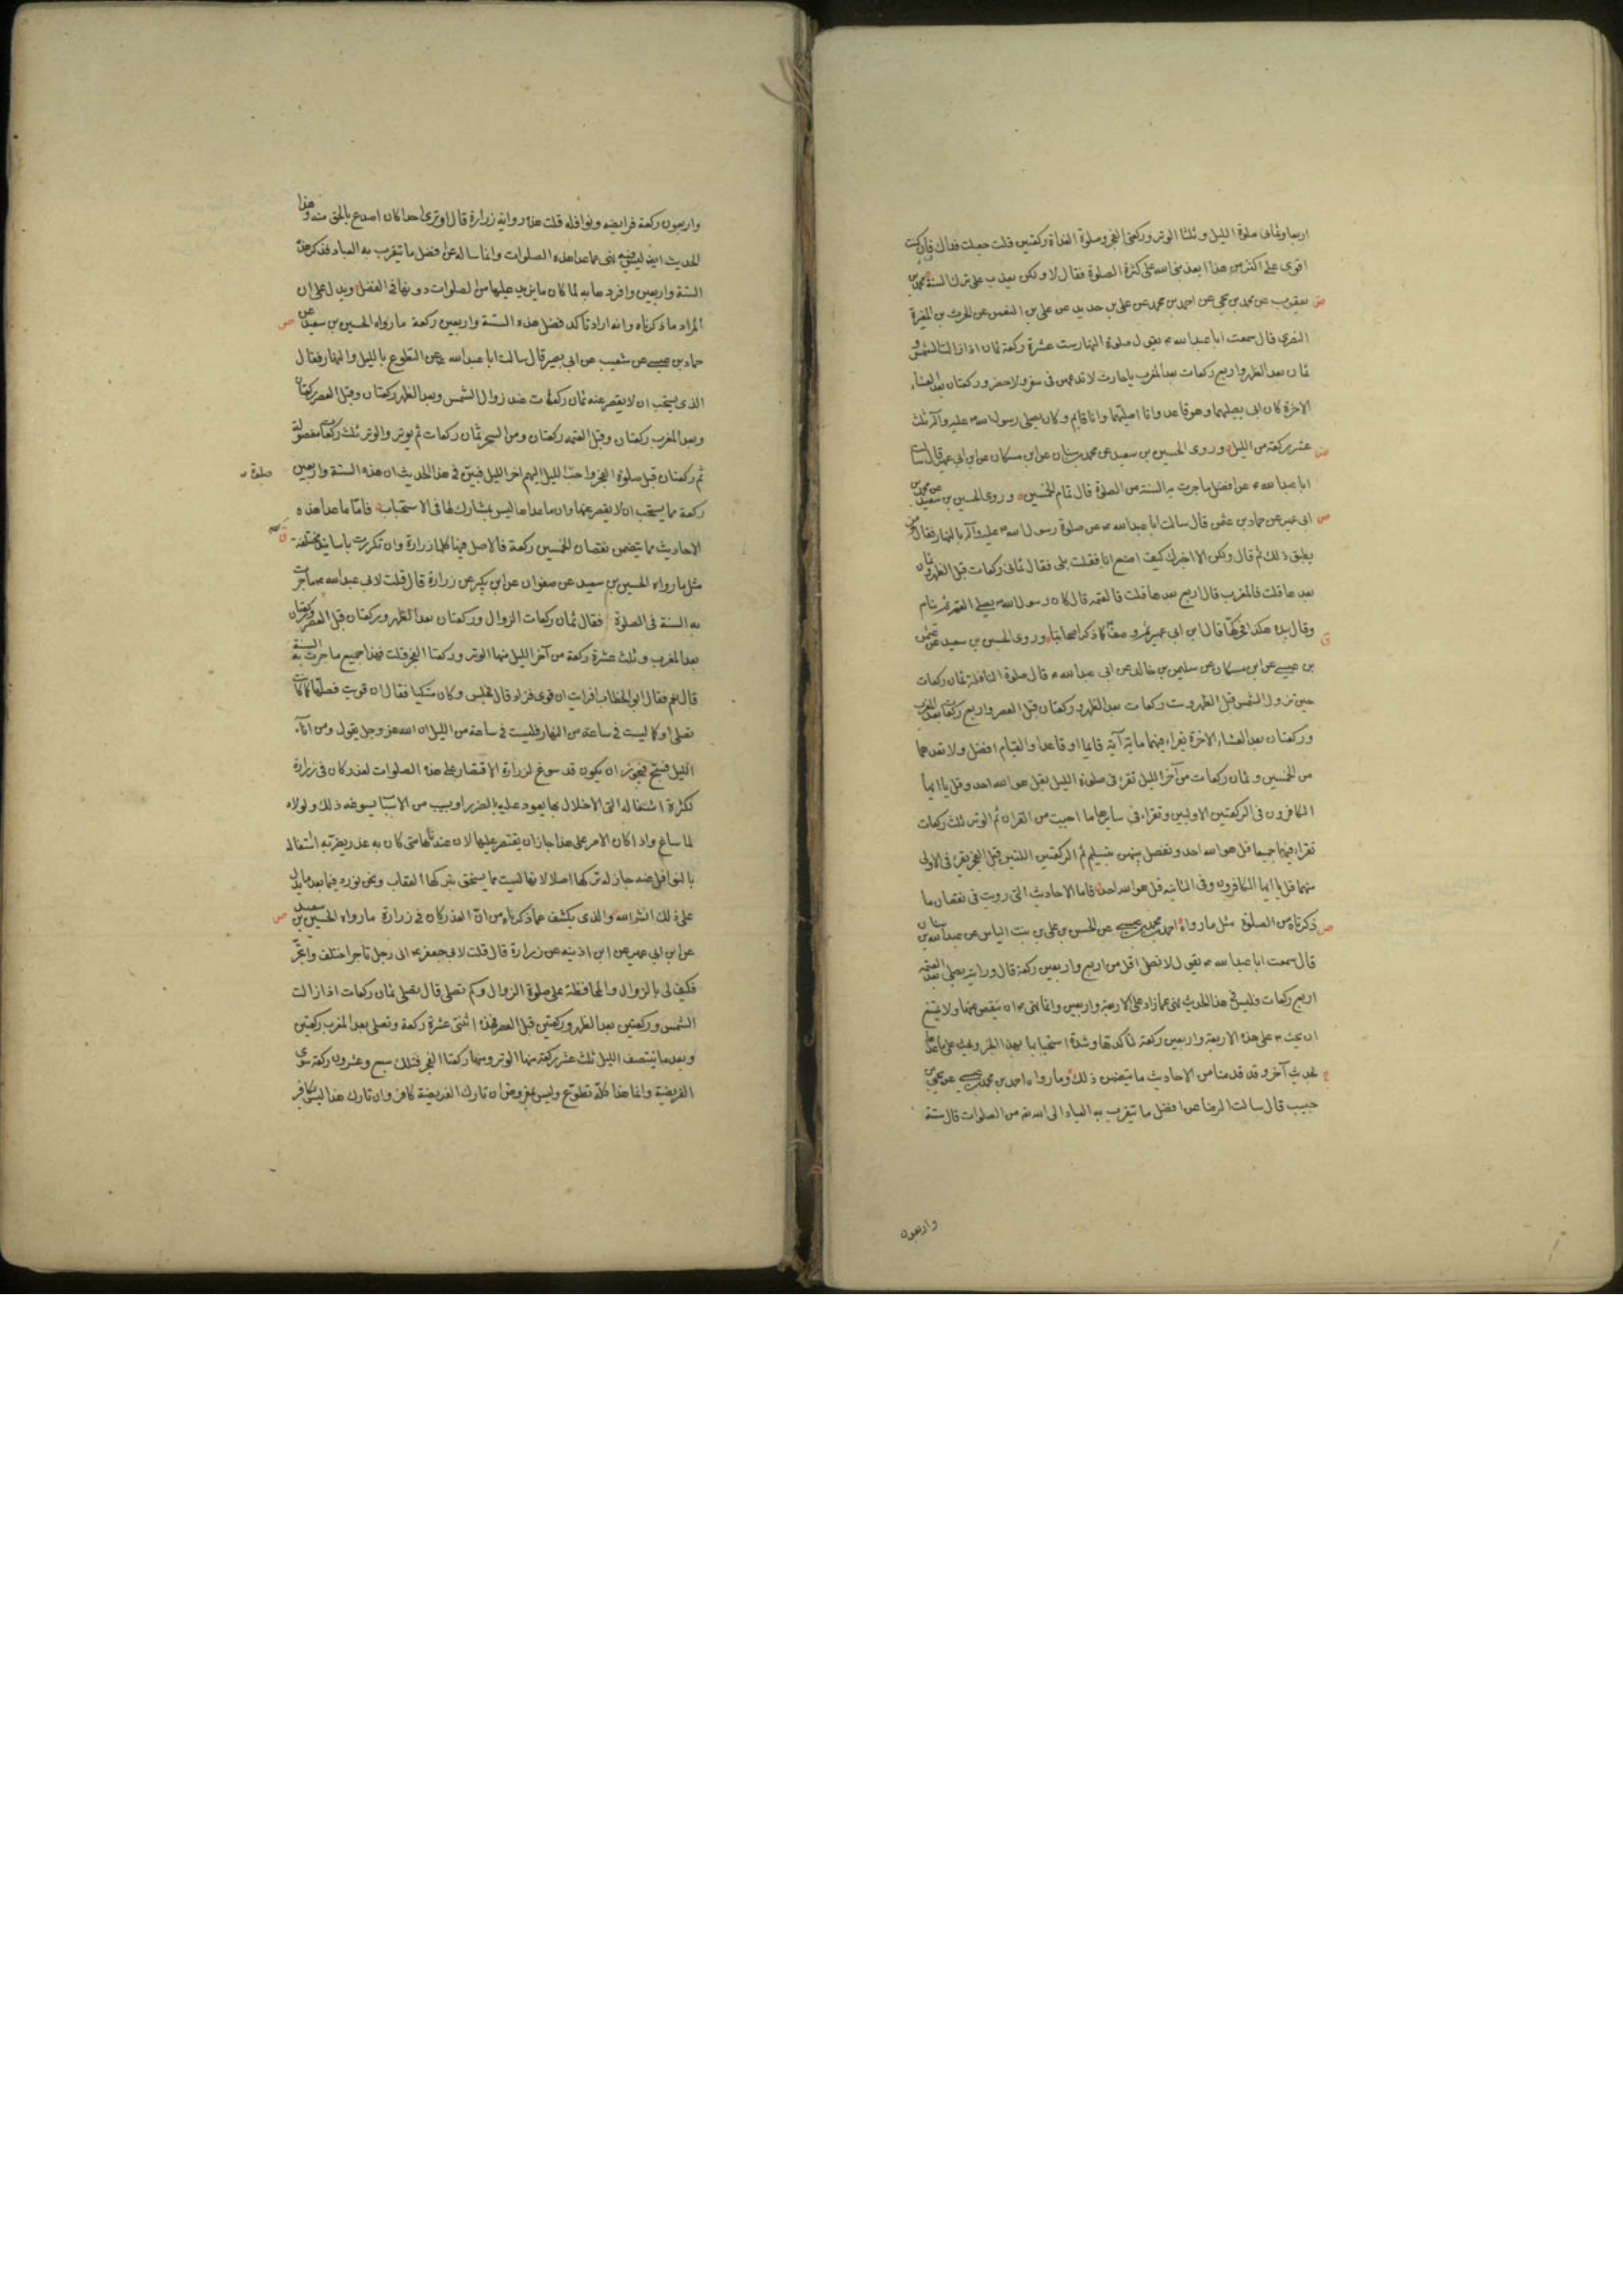 اربعا وثمانى صلوة الليل وثلثا الوتر وركعتى الفجر وصلوة الغداة ركعتين قلت جعلت فداك فان كنت
اقوى على اكثر من هذا ايعذبنى الله على كثرة الصلوة فقال لا ولكن يعذب على ترك السنة محمد بن
يعقوب عن محمد بن يحيى عن احمد بن محمد عن على بن حديد عن على بن النعمن عن الحرث بن المغيرة
النصرى قال سمعت ابا عبد الله ع يقول صلوة النهار ست عشرة ركعة ثمان اذا زالت الشمس و
ثمان بعد الظهر واربع ركعات بعد المغرب يا حارث لا تدعهن فى سفر ولا حضر وركعتان بعد العشاء
الاخرة كان ابى يصليهما وهو قاعد وانا اصليهما وانا قايم وكان يصلى رسول الله ص عليه وآله ثلث
عشر ركعة من الليل وروى الحسين بن سعيد عن محمد بن سنان عن ابن مسكان عن ابن ابى عمير قال سالت
ابا عبد الله ع عن افضل ما جرت به السنة من الصلوة قال تمام الخمسين وروى الحسين بن سعيد عن محمد بن
ابى عمير عن حماد بن عثمن قال سالت ابا عبد الله ع عن صلوة رسول الله ص عليه وآله بالنهار فقال من
يطيق ذلك ثم قال ولكن الا اخبرك كيف اصنع انا فقلت بلى فقال ثمانى ركعات قبل الظهر وثمان
بعدها قلت فالمغرب قال اربع بعدها قلت فالعتمة قال كان رسول الله ص يصلى العتمة ثم ينام
وقال بيده هكذا فحركها قال ابن ابى عمير ثم وصف كما ذكر اصحابنا وروى الحسين بن سعيد عن عثمن
بن عيسى عن ابن مسكان عن سليمن بن خالد عن ابى عبد الله ع قال صلوة النافلة ثمان ركعات
حين تزول الشمس قبل الظهر وست ركعات بعد الظهر وركعتان قبل العصر واربع ركعات بعد المغرب
وركعتان بعد العشاء الاخرة يقراء فيهما ماية آية قايما او قاعدا والقيام افضل ولا تعدهما
من الخمسين وثمان ركعات من آخر الليل تقرء فى صلوة الليل بقل هو الله احد وقل يا ايها
الكافرون فى الركعتين الاوليين وتقراء فى سايرها ما احببت من القران ثم الوتر ثلث ركعات
تقراء فيها جميعا قل هو الله احد وتفصل بينهن بتسليم ثم الركعتين اللتين قبل الفجر تقرء فى الاولى
منهما قل يا ايها الكافرون وفى الثانية قل هو الله احد فاما الاحاديث التى رويت فى نقصان ما
ذكرناه من الصلوة مثل ما رواه احمد بن محمد بن عيسى عن الحسن بن على بن بنت الياس عن عبد الله بن سنان
قال سمعت ابا عبد الله ع يقول لا تصل اقل من اربع واربعين ركعة قال ورايته يصلى بعد العتمة
اربع ركعات فليس فى هذا الحديث نهى عما زاد على الاربعة واربعين وانما نهى ع ان ينقص عنها ولا يمتنع
ان يحث ع على هذه الاربعة واربعين ركعة لتأكدها وشدة استحبابها بهذا الخبر ويحث على ما عداها
بحديث آخر وقد قدمنا من الاحاديث ما يتضمن ذلك وما رواه احمد بن محمد بن عيسى عن يحيى بن
حبيب قال سالت الرضا عن افضل ما يتقرب به العباد الى الله تعه من الصلوات قال ستة
واربعون
واربعون ركعة فرايضه ونوافله قلت هذه رواية زرارة قال اوترى احدا كان اصدع بالحق منه وهذا
الحديث ايضا ليس فيه نهى عما عدا هذه الصلوات وانما ساله عن افضل ما يتقرب به العباد فذكر هذه
الستة واربعين وافردها به لما كان ما يزيد عليها من الصلوات دونها فى الفضل ويدل على ان
المراد ما ذكرناه وانه اراد تاكد فضل هذه الستة واربعين ركعة ما رواه الحسين بن سعيد عن
حماد بن عيسى عن شعيب عن ابى بصير قال سالت ابا عبد الله ع عن التطوع بالليل والنهار فقال
الذى يستحب ان لا يقصر عنه ثمان ركعات عند زوال الشمس وبعد الظهر ركعتان وقبل العصر ركعتان
وبعد المغرب ركعتان وقبل العتمة ركعتان ومن السحر ثمان ركعات ثم يوتر والوتر ثلث ركعات مفصولة
ثم ركعتان قبل صلوة الفجر واحب صلوة الليل اليهم اخر الليل فبين فى هذا الحديث ان هذه الستة واربعين
ركعة مما يستحب ان لا يقصر عنها وان ما عداها ليس بمشارك لها فى الاستحباب فاما ما عدا هذه
الاحاديث مما يتضمن نقصان الخمسين ركعة فالاصل فيها كلها زرارة وان تكررت باسانيد مختلفة
مثل ما رواه الحسين بن سعيد عن صفوان عن ابن بكير عن زرارة قال قلت لابى عبد الله ع ما جرت
به السنة فى الصلوة فقال ثمان ركعات الزوال وركعتان بعد الظهر وركعتان قبل العصر وركعتان
بعد المغرب وثلث عشرة ركعة من آخر الليل منها الوتر وركعتا الفجر قلت فهذا جميع ما جرت به السنة
قال نعم فقال ابو الخطاب افرايت ان قوى فزاد قال فجلس وكان متكيا فقال ان قويت فصلها كما كانت
تصلى وكما ليست فى ساعة من النهار فليست فى ساعة من الليل ان الله عز وجل يقول ومن اناء
الليل فسبح فيجوز ان يكون قد سوغ لزرارة الاقتصار على هذه الصلوات لعذر كان فى زرارة
لكثرة اشتغاله التى الاخلال بها يعود عليه بالضرر او سبب من الاسباب يسوغه ذلك ولولاه
لما ساغ واذا كان الامر على هذا جاز ان يقتصر عليها لان عندنا متى كان به عذر يضر به اشتغاله
بالنوافل عنه جاز له تركها اصلا لانها ليست مما يستحق بتركها العقاب ونحن نورد فيما بعد ما يدل
على ذلك انشاء الله والذى يكشف عما ذكرناه من ان العذر كان فى زرارة ما رواه الحسين بن سعيد
عن ابن ابى عمير عن ابن اذينه عن زرارة قال قلت لابى جعفر ع انى رجل تاجر اختلف واتجر
فكيف لى بالزوال والمحافظة على صلوة الزوال وكم تصلى قال تصلى ثمان ركعات اذا زالت
الشمس وركعتين بعد الظهر وركعتين قبل العصر فهذه اثنتى عشرة ركعة وتصلى بعد المغرب ركعتين
وبعد ما ينتصف الليل ثلث عشر ركعة منها الوتر ومنها ركعتا الفجر فتلك سبع وعشرون ركعة سوى
الفريضة وانما هذا كله تطوع وليس بمفروض ان تارك الفريضة كافر وان تارك هذا ليس بكافر